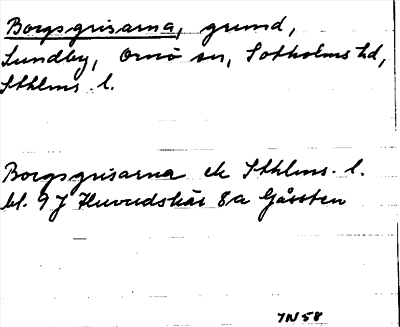 Borgsgrisarna, grund,
Lundby, Ornö sn, Sotholms hd,
Sthlms l.
Borgsgrisarna ek Sthlms l.
bl. 9 J Huvudskär 8a Gåssten
7N58